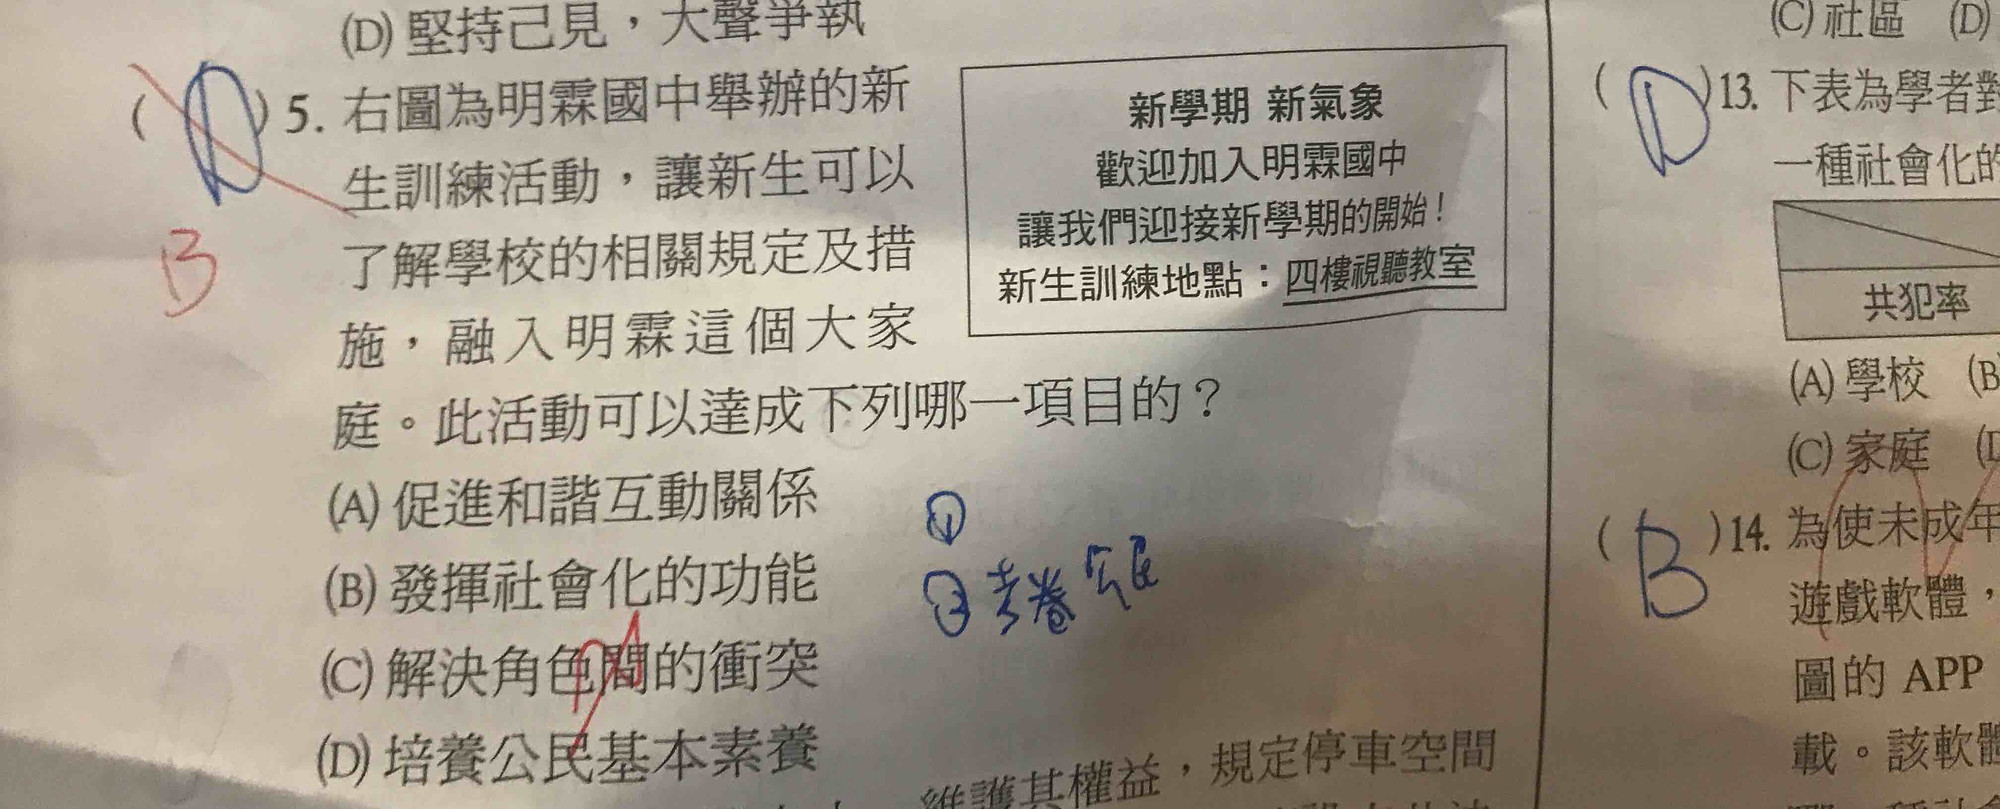 (D) 堅持己見，大聲爭執
( D ) 5. 右圖為明霖國中舉辦的新
生訓練活動，讓新生可以
了解學校的相關規定及措
施，融入明霖這個大家
庭。此活動可以達成下列哪一項目的？
B
新學期 新氣象
歡迎加入明霖國中
讓我們迎接新學期的開始！
新生訓練地點：四樓視聽教室
(A) 促進和諧互動關係
(B) 發揮社會化的功能
(C) 解決角色間的衝突
(D) 培養公民基本素養
①
②考卷
維護其權益，規定停車空間
(C) 社區 (D)
( D ) 13. 下表為學者對
一種社會化的
共犯率
(A) 學校 (B
(C) 家庭
( B ) 14. 為使未成年
遊戲軟體，
圖的 APP
載。該軟體